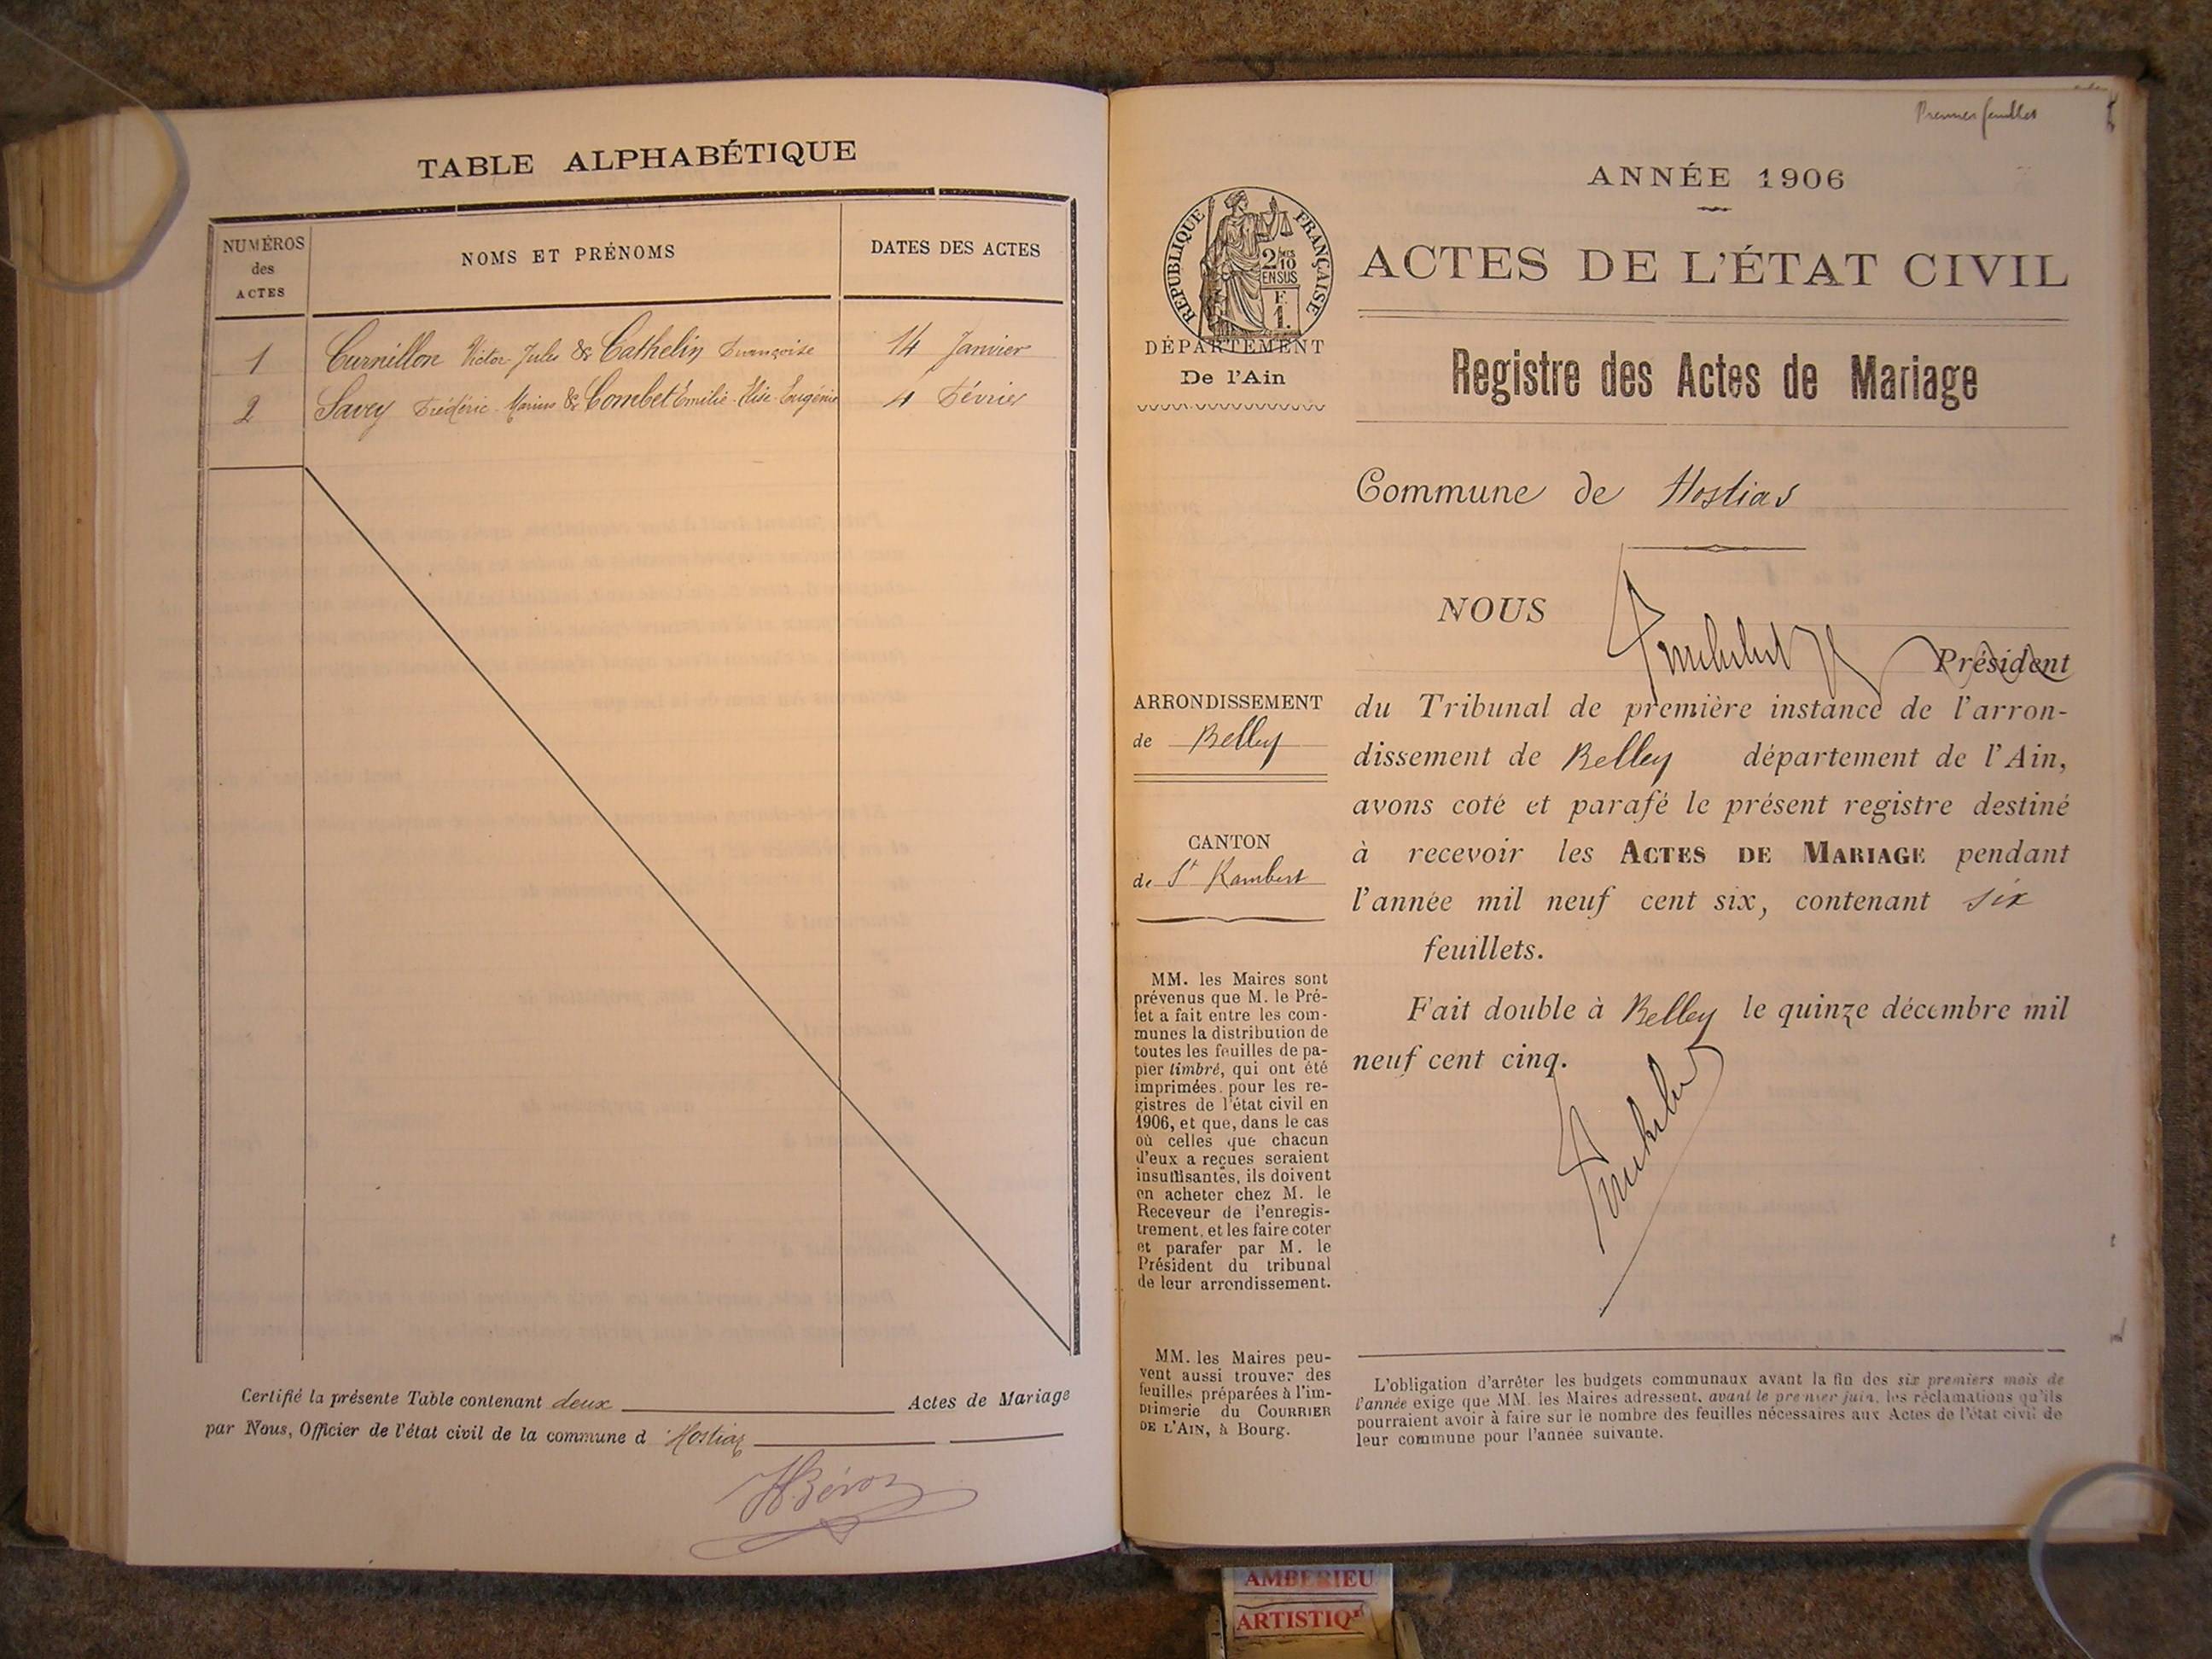 TABLE ALPHABÉTIQUE
NUMÉROS
des
ACTES
NOMS ET PRÉNOMS
DATES DES ACTES
1 Curnillon Victor-Jules & Cathelin Françoise 14 Janvier
2 Savey Frédéric-Marius & Combet Emilie-Elise-Eugénie 4 Février
Certifié la présente Table contenant deux Actes de Mariage
par Nous, Officier de l'état civil de la commune d Hostiaz
Premier feuillet
ANNÉE 1906
RÉPUBLIQUE FRANÇAISE
2/10
EN SUS
F.
1.
DÉPARTEMENT
De l'Ain
ACTES DE L'ÉTAT CIVIL
Registre des Actes de Mariage
Commune de Hostias
NOUS
Président
ARRONDISSEMENT
de Belley
CANTON
de St Rambert
du Tribunal de première instance de l'arron-
dissement de Belley département de l'Ain,
avons coté et parafé le présent registre destiné
à recevoir les ACTES DE MARIAGE pendant
l'année mil neuf cent six, contenant six
feuillets.
Fait double à Belley le quinze décembre mil
neuf cent cinq.
MM. les Maires sont
prévenus que M. le Pré-
fet a fait entre les com-
munes la distribution de
toutes les feuilles de pa-
pier timbré, qui ont été
imprimées pour les re-
gistres de l'état civil en
1906, et que, dans le cas
où celles que chacun
d'eux a reçues seraient
insuffisantes, ils doivent
en acheter chez M. le
Receveur de l'enregis-
trement, et les faire coter
et parafer par M. le
Président du tribunal
de leur arrondissement.
MM. les Maires peu-
vent aussi trouver des
feuilles préparées à l'im-
primerie du COURRIER
DE L'AIN, à Bourg.
L'obligation d'arrêter les budgets communaux avant la fin des six premiers mois de
l'année exige que MM. les Maires adressent, avant le premier juin, les réclamations qu'ils
pourraient avoir à faire sur le nombre des feuilles nécessaires aux Actes de l'état civil de
leur commune pour l'année suivante.
AMBERIEU
ARTISTIQ